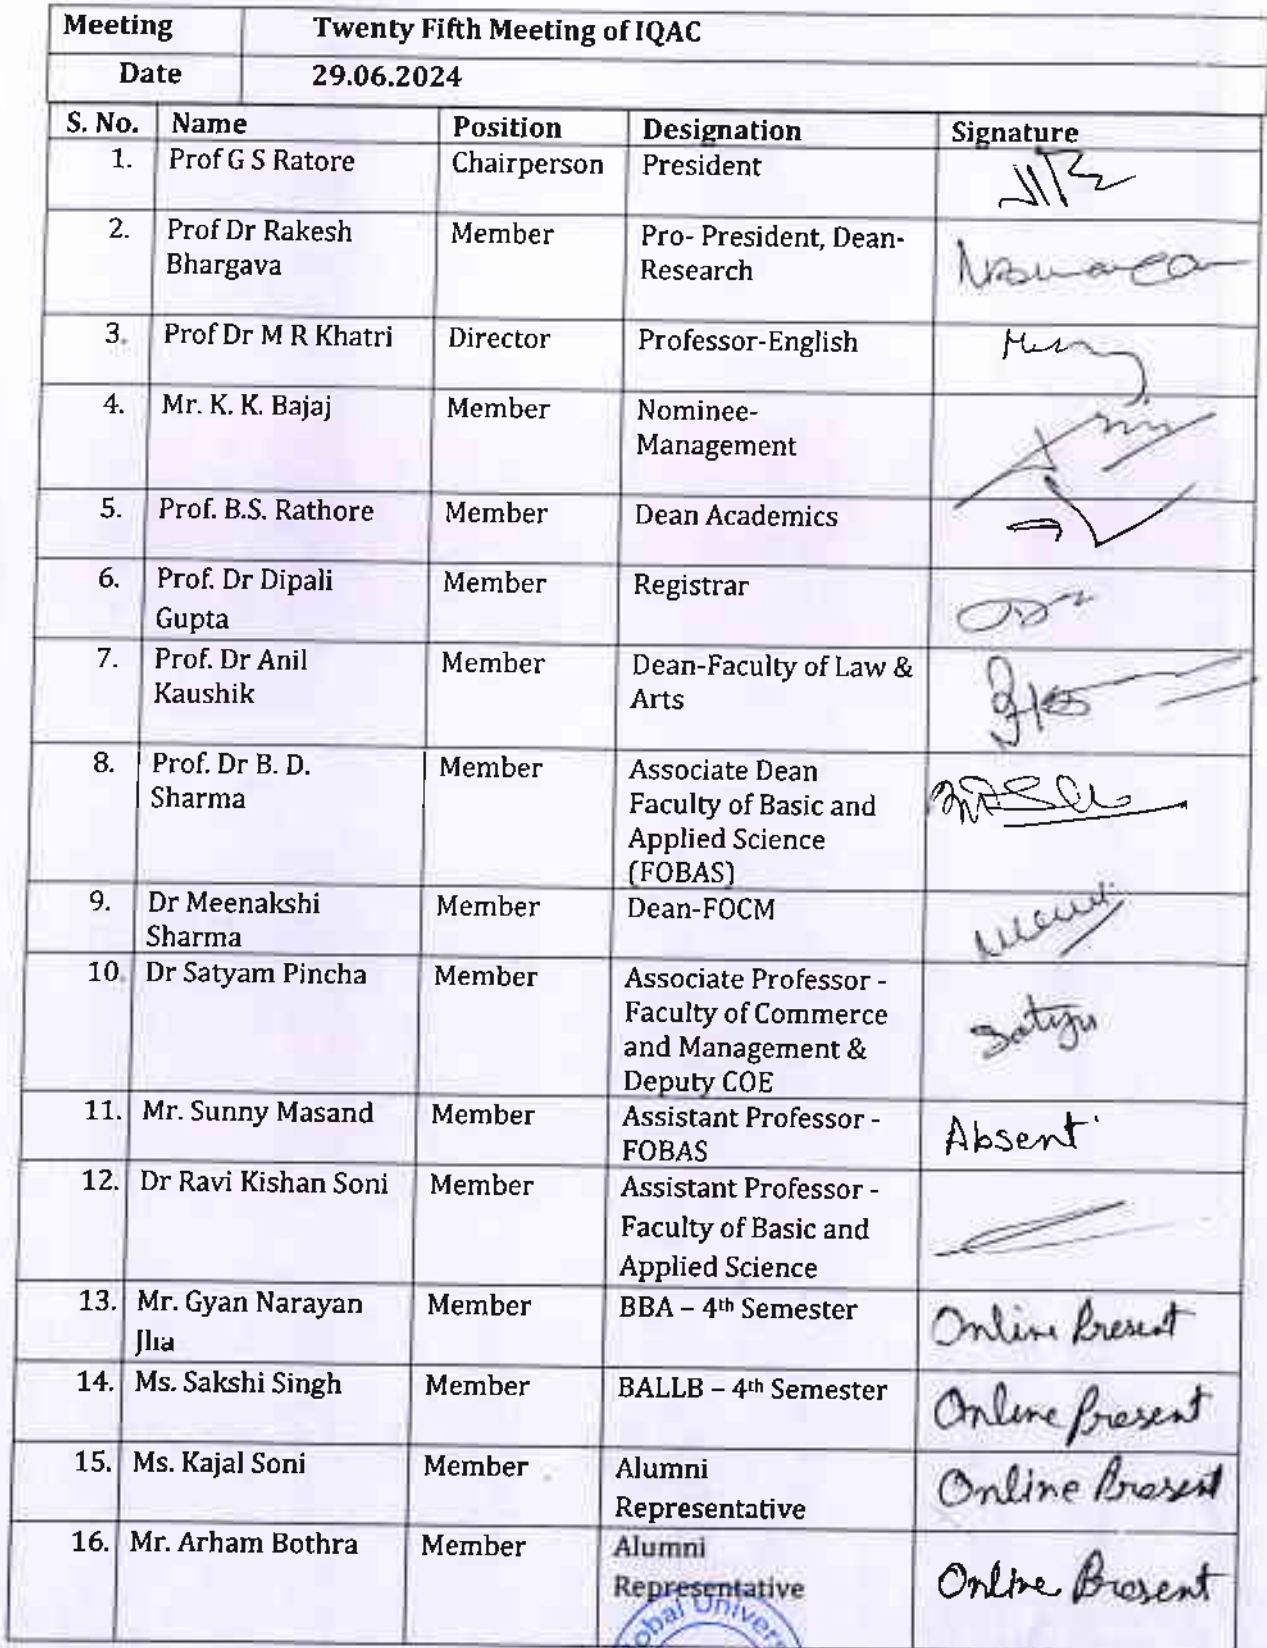 Meeting Twenty Fifth Meeting of IQAC
Date 29.06.2024
S. No. Name Position Designation Signature
1. Prof G S Ratore Chairperson President
2. Prof Dr Rakesh Member Pro- President, Dean-
Bhargava Research
3. Prof Dr M R Khatri Director Professor-English
4. Mr. K. K. Bajaj Member Nominee-
Management
5. Prof. B.S. Rathore Member Dean Academics
6. Prof. Dr Dipali Member Registrar
Gupta
7. Prof. Dr Anil Member Dean-Faculty of Law &
Kaushik Arts
8. Prof. Dr B. D. Member Associate Dean
Sharma Faculty of Basic and
Applied Science
(FOBAS)
9. Dr Meenakshi Member Dean-FOCM
Sharma
10. Dr Satyam Pincha Member Associate Professor -
Faculty of Commerce
and Management &
Deputy COE
11. Mr. Sunny Masand Member Assistant Professor - Absent
FOBAS
12. Dr Ravi Kishan Soni Member Assistant Professor -
Faculty of Basic and
Applied Science
13. Mr. Gyan Narayan Member BBA – 4th Semester Online Present
Jha
14. Ms. Sakshi Singh Member BALLB – 4th Semester Online Present
15. Ms. Kajal Soni Member Alumni Online Present
Representative
16. Mr. Arham Bothra Member Alumni Online Present
Representative